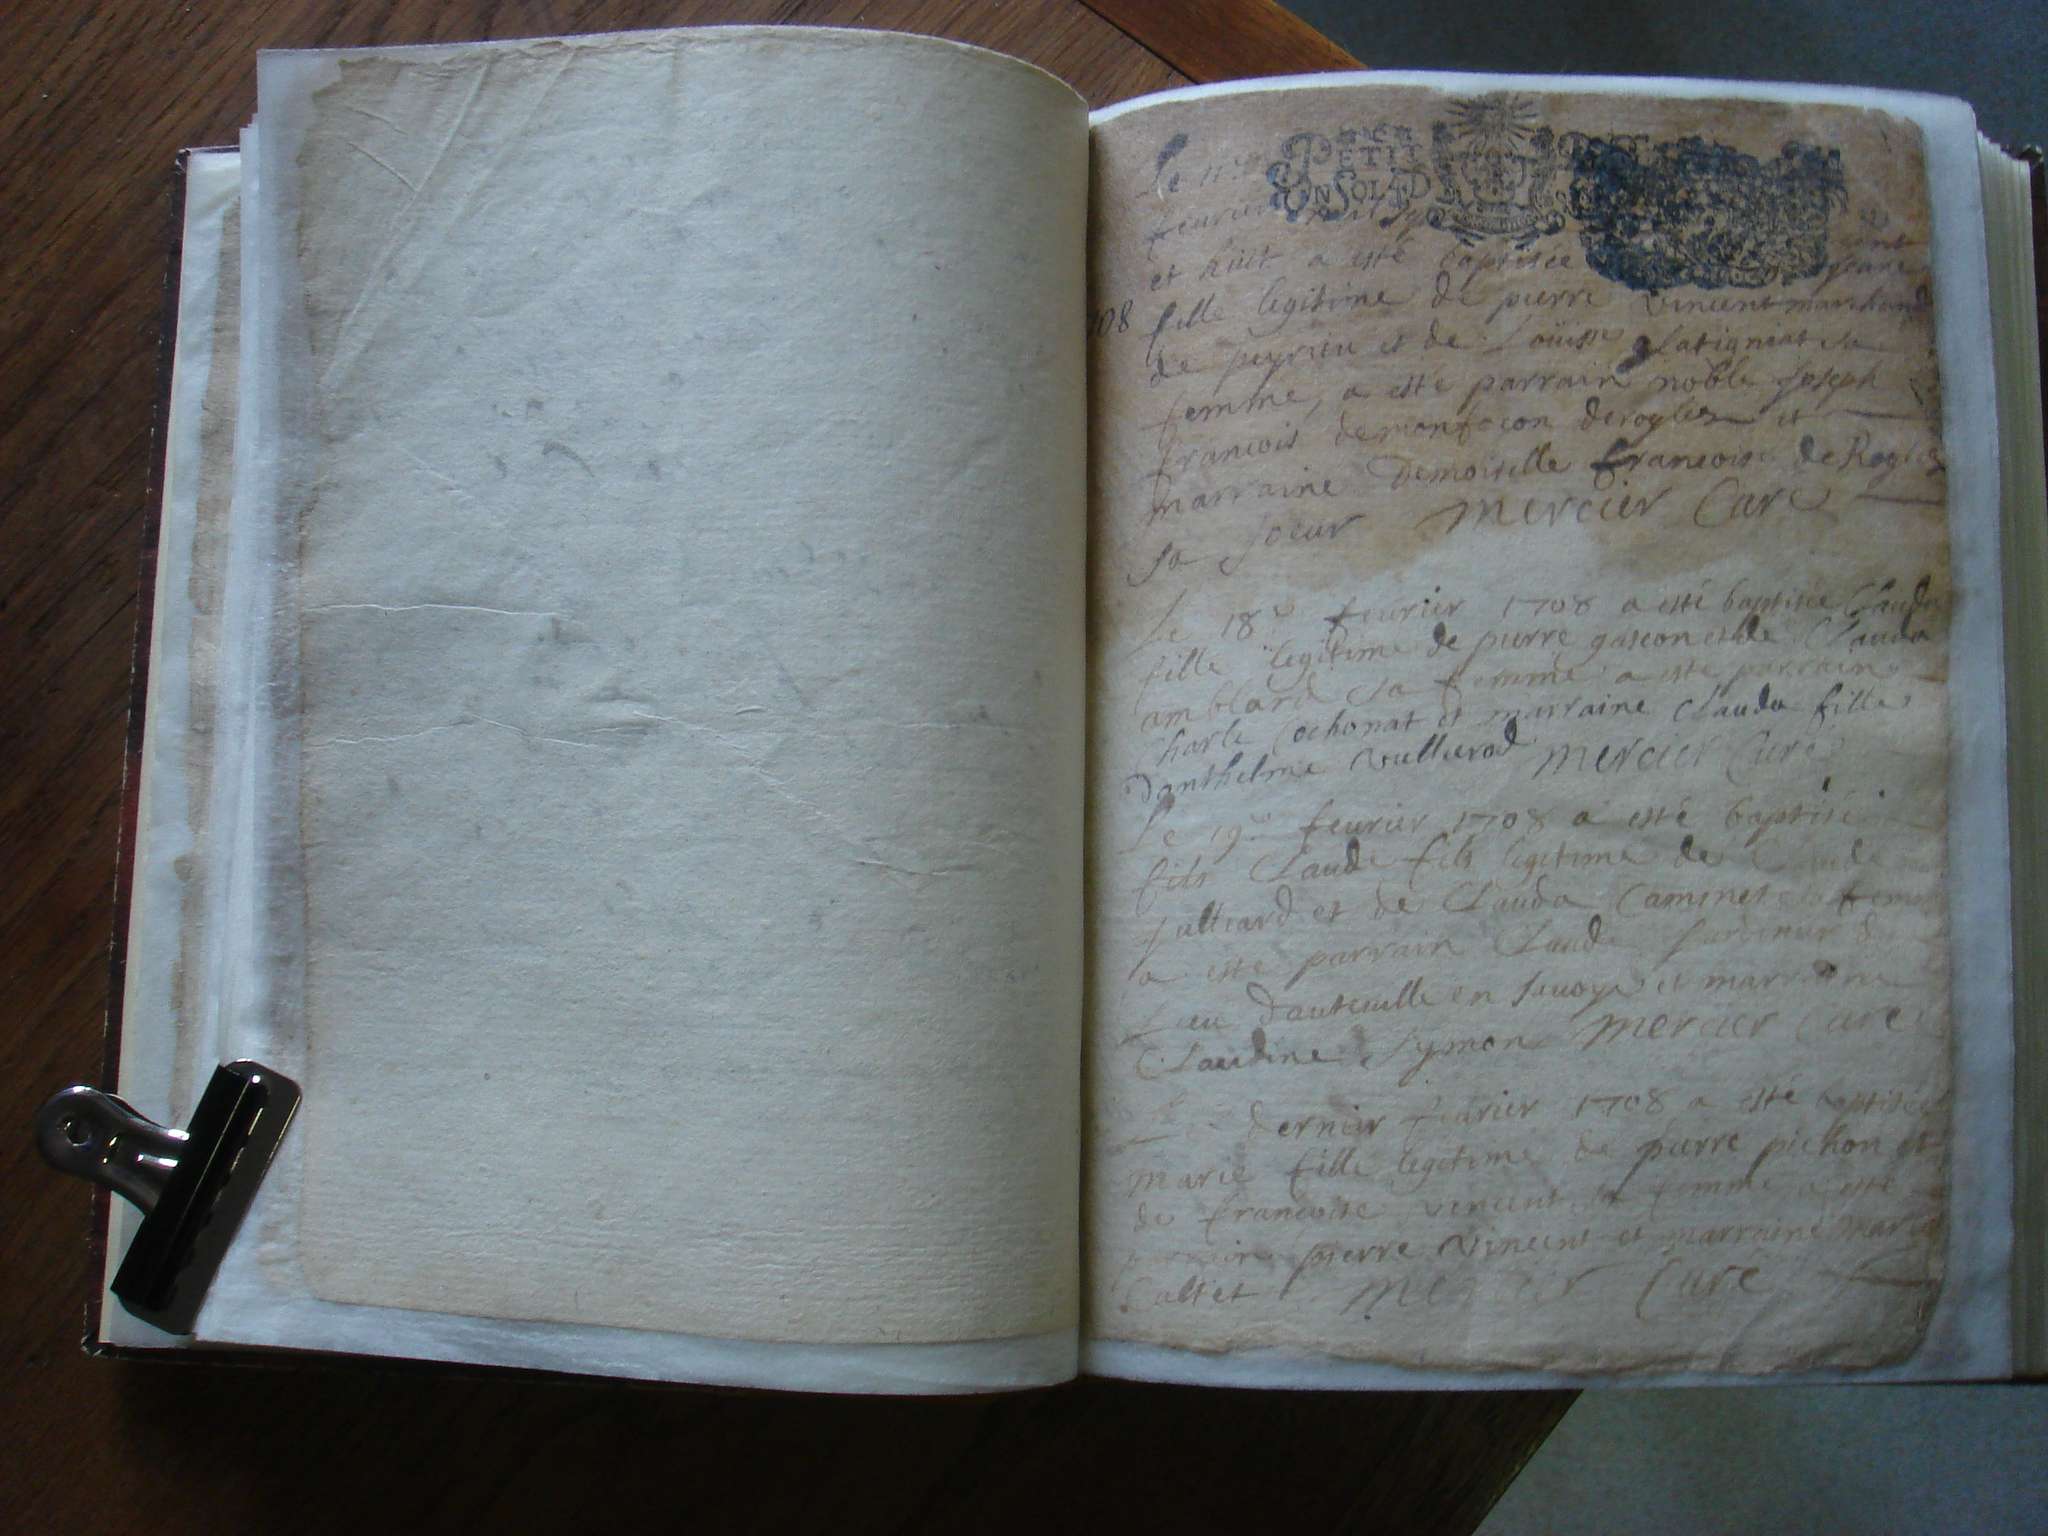 PETIT
UN SOL
Le 11
feurier
et huit a esté baptisée
fille legitime de pierre vincent marchand
708
de peyrieu et de Louise Latigniat sa
femme, a esté parrain noble Joseph
francois demonfocon derogles et
marraine Demoiselle francoise de Rogles
sa soeur Mercier Curé
Le 18e feurier 1708 a esté baptisée Clauda
fille legitime de pierre gascon et de Clauda
amblard sa femme a esté parrain
Charle Cochonat et marraine Clauda fille
danthelme vullierod Mercier Curé
Le 19e feurier 1708 a esté baptisé
fils Claude fils legitime de Claude
Jullieard et de Clauda Caminet sa femme
a esté parrain Claude
feu dauteuille en sauoye et marraine
Claudine Symon Mercier Curé
Le dernier feurier 1708 a esté baptisée
marie fille legitime de pierre pichon et
de francoise vincent sa femme a esté
parrain pierre Vincent et marraine marie
Caltet Mercier Curé